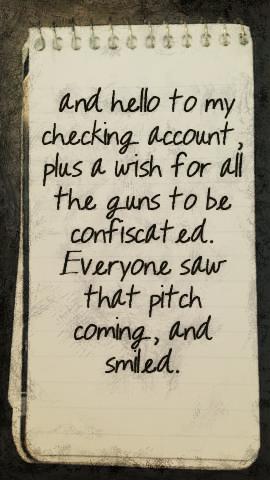 and hello to my
checking account,
plus a wish for all
the guns to be
confiscated.
Everyone saw
that pitch
coming, and
smiled.